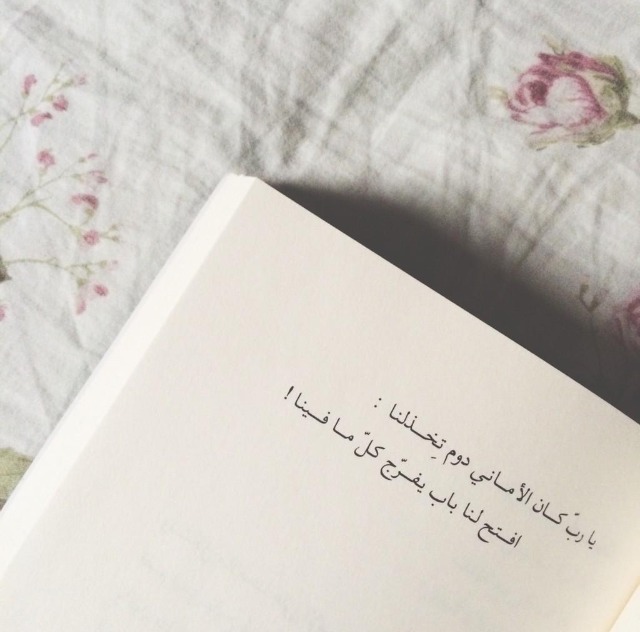 يا ربّ كان الأماني دوم تِخذلنا :
افتح لنا باب يفرّج كلّ ما فينا !